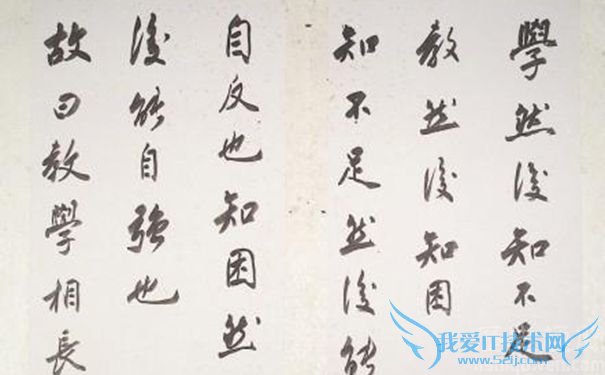 學然後知不足
教然後知困
知不足然後能
自反也知困然
後能自強也
故曰教學相長
我爱IT技术网
www.52ij.com